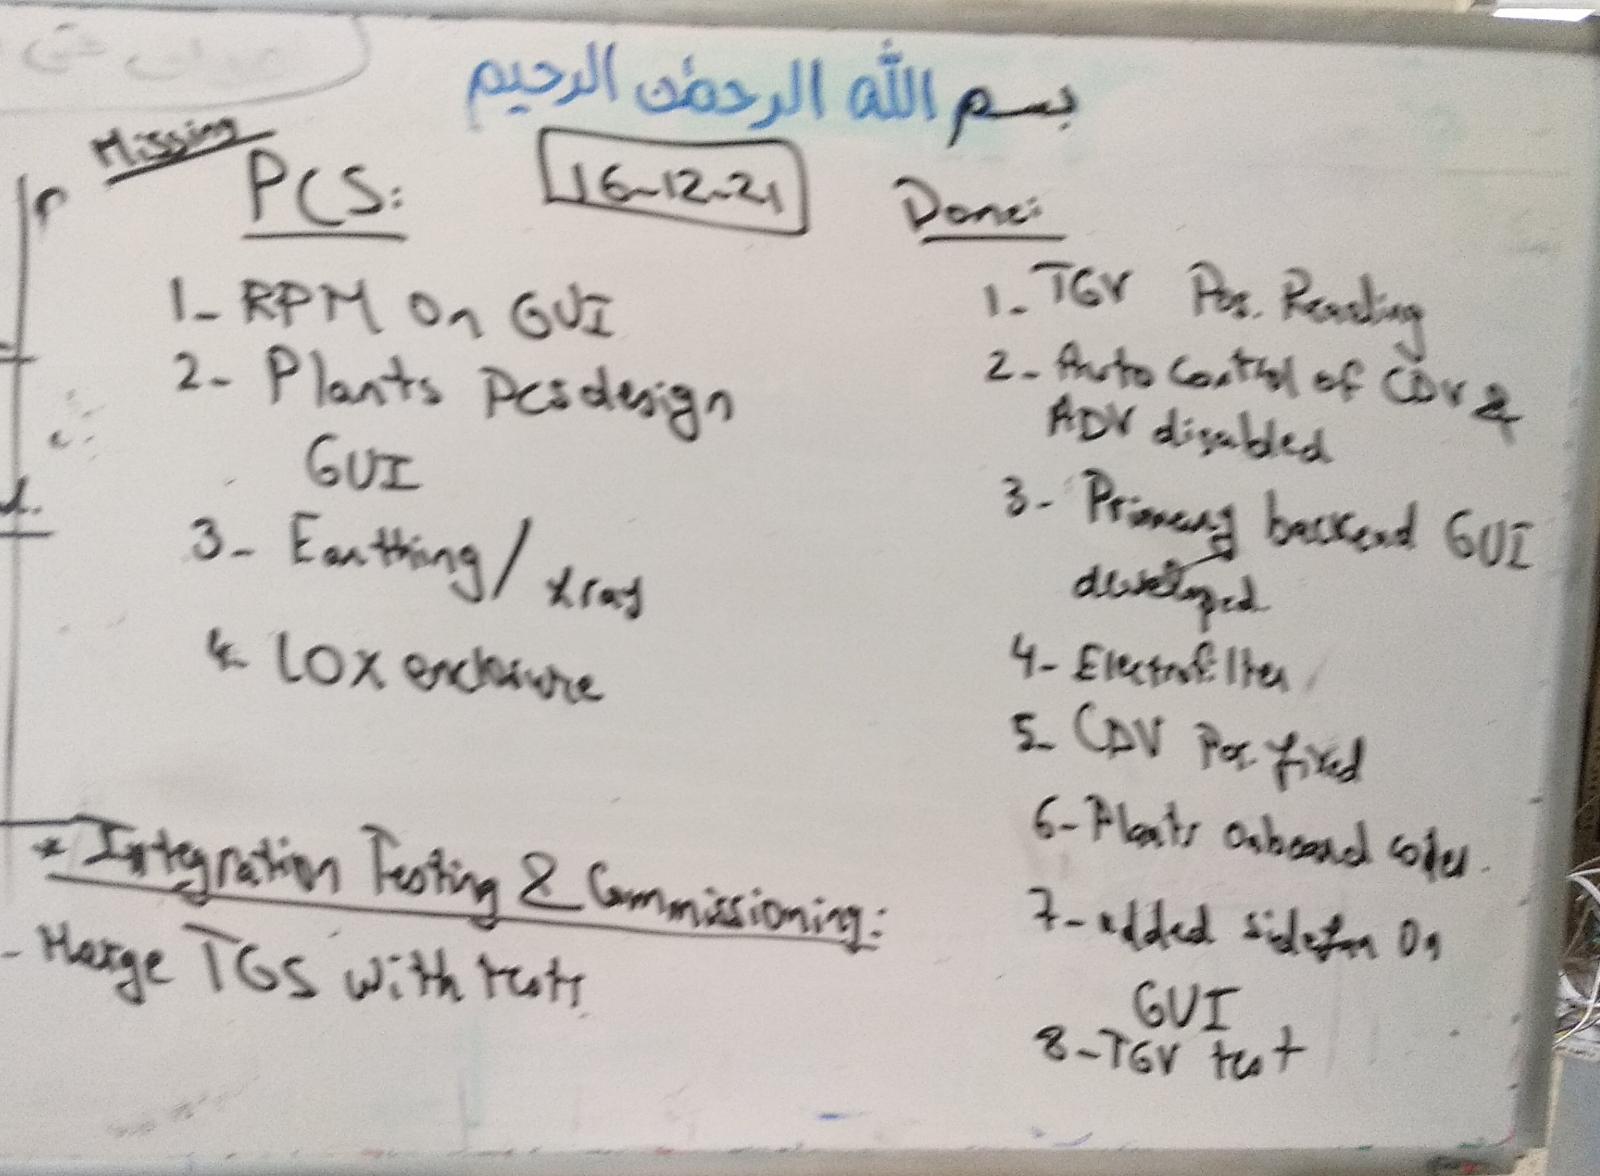 بسم الله الرحمن الرحيم
Missing
PCS:
16-12-21
1- RPM On GUI
2- Plants Pcs design
GUI
3- Earthing / xray
4- LOX enclosure
Done:
1- TGV Pos. Reading
2- Auto Control of CDV &
ADV disabled
3- Primary backend GUI
developed
4- Electrofilter
5- CDV Pos. fixed
6- Plants onboard codes.
7- added sidefan On
GUI
8- TGV test
* Integration Testing & Commissioning:
- Merge TGS with tests